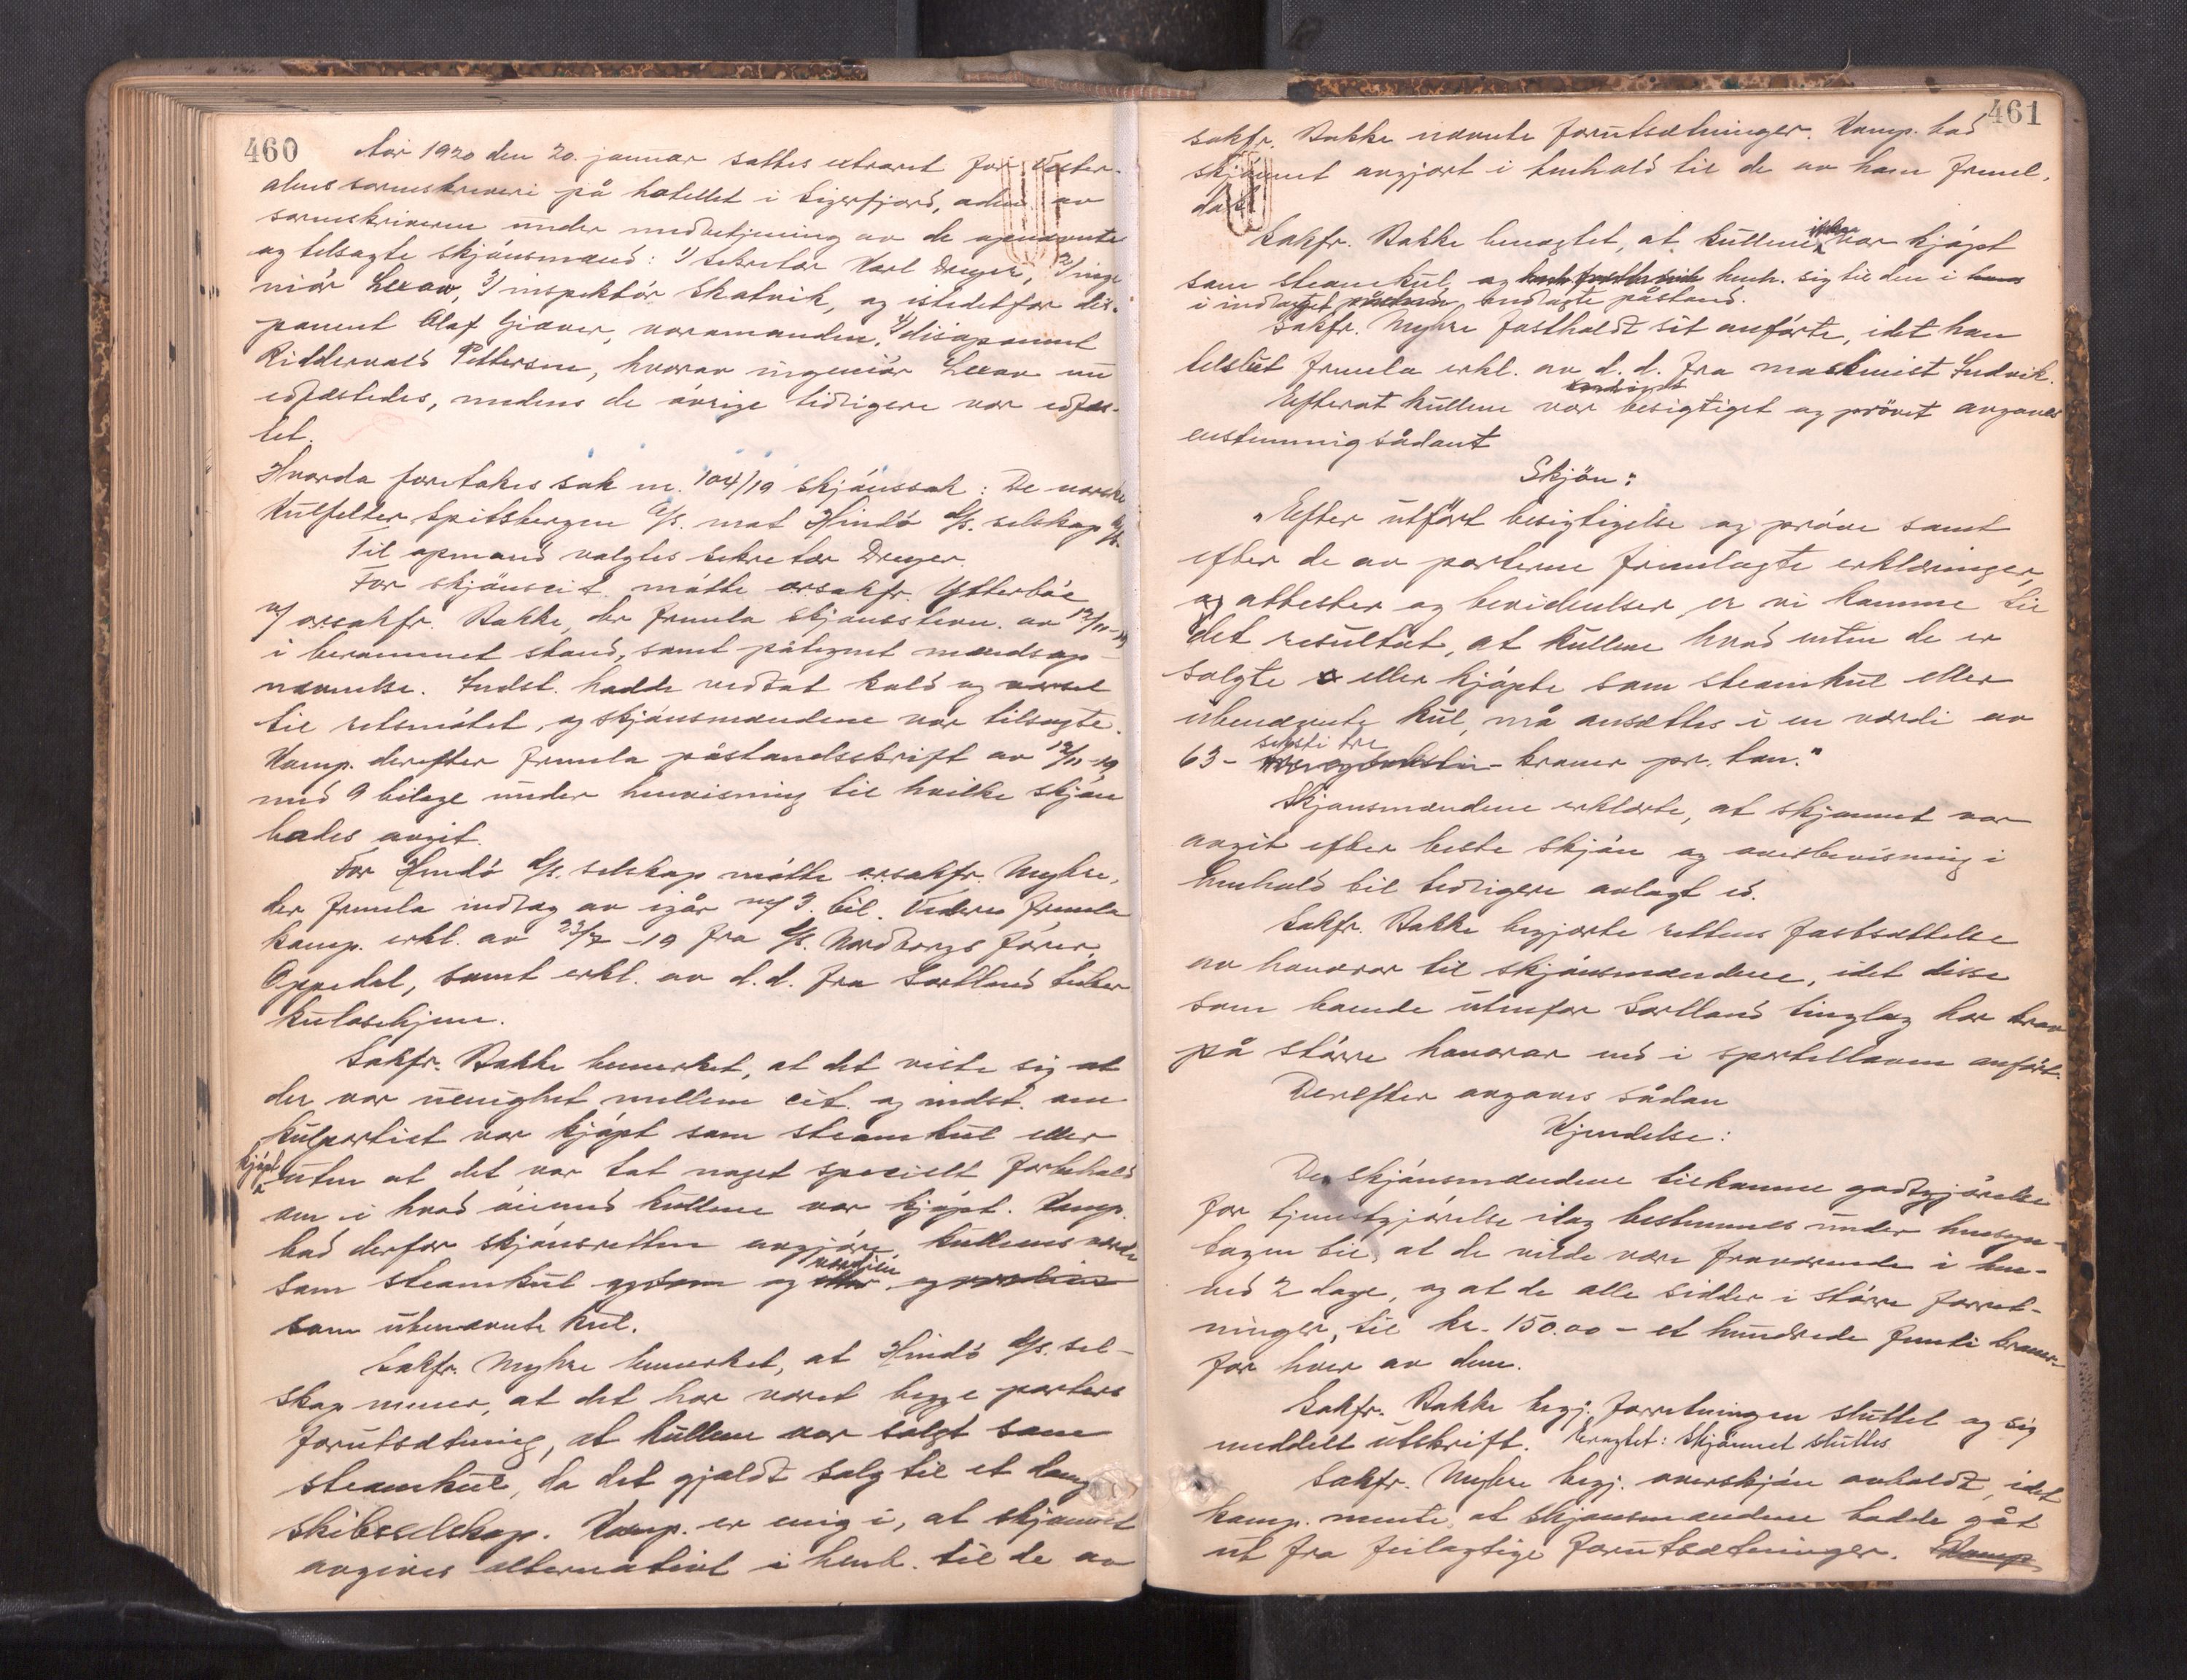 460
Aar 1920 den 20. januar sattes extraret for Vester-
alens sorenskriveri på hotellet i Sigerfjord, adm. av
sorenskriveren under medbetjening av de opnævnte
og tilsagte skjønsmænd: 1) sekretær Karl Dreyer, 2) inge
niør Lexow, 3) inspektør Skatvik, og istedetfor dis-
ponent Olaf Giæver, varamanden, 4) disponent
Riddervold Pettersen, hvorav ingeniør Lexow nu
edfæstedes, medens de øvrige tidligere var edfæs-
tet.
Hvorda foretokes sak nr. 104/19 skjønssak: De norske
Kulfelter Spitsbergen A/S. mot Hindø D/S. selskap A/S.
Til opmand valgtes sekretær Dreyer.
For skjønscit. møtte orsakfr. Ytterbøe
v/ orsakfr. Bakke, der fremla skjønsstevn. av 12/11-19
i berammet stand, samt påtegnet mændsop-
nævnelse. Indst. hadde vedtat kald og varsel
til retsmøtet, og skjønsmændene var tilsagte.
Komp. derefter fremla påstandsskrift av 12/11-19
med 9 bilage under henvisning til hvilke skjøn
bades avgit.
For Hindø D/S. selskap møtte orsakfr. Myhre,
der fremla indlæg av igår m/ 3. bil. Videre fremla
komp. erkl. av 23/7-19 fra D/S. Nordborgs fører,
Oppedal, samt erkl. av d.d. fra Sortland
Sakfr. Bakke bemerket, at det viste sig at
der var uenighet mellem cit. og indst. om
kulpartiet var kjøpt som steamkul eller
kjøpt uten at det var tat noget specielt forbehold
om i hvad øiemed kullene var kjøpt. Komp.
bad derfor skjønsretten avgjøre kullenes værdi
som steamkul og som og eller værdien og værdien
som ubenævnte kul.
Sakfr. Myhre bemerket, at Hindø D/S. sel-
skap mener, at det har været begge parters
forutsætning, at kullene var solgt som
steamkul, da det gjældt salg til et damp
skibsselskap. Komp. er enig i, at skjønnet
avgives alternativt i henh. til de av
461
sakfr. Bakke nævnte forutsætninger. Komp. bad
skjønnet avgjort i henhold til de av ham freml.
data.
Sakfr. Bakke benegtet, at kullene ikke var kjøpt
som steamkul og henh. sig til den i
i indlægget nedlagte påstand.
Sakfr. Myhre fastholdt sit anførte, idet han
tilslut fremla erkl. av d.d. fra maskinist Ludvik.
Efterat kullene var besigtiget og prøvet avgaves
enstemmig sådant
Skjøn:
"Efter utført besigtigelse og prøve samt
efter de av parterne fremlagte erklæringer,
og attester og bevidnelser er vi komme til
det resultat, at kullene hvad enten de er
solgte eller kjøpte som steamkul eller
ubenævnte kul, må ansættes i en værdi av
63 - seksti tre - kroner pr. ton."
Skjønsmændene erklærte, at skjønnet var
avgit efter beste skjøn og overbevisning i
henhold til tidligere avlagt ed.
Sakfr. Bakke begjærte rettens fastsættelse
av honorar til skjønsmændene, idet disse
som boende utenfor Sortland tinglag har krav
på større honorar end i sportelloven anført.
Derefter avgaves sådan
Kjendelse:
De skjønsmændene tilkomne godtgjørelse
for tjenestgjørelse idag bestemmes under hensyn-
tagen til, at de vilde være fraværende i hen-
ved 2 dage, og at de alle sidder i større forret-
ninger, til kr. 150.00 - et hundrede femti kroner -
for hver av dem.
Sakfr. Bakke begj. forretningen sluttet og sig
meddelt utskrift. Eragtet: Skjønnet sluttes
Sakfr. Myhre begj. overskjøn avholdt, idet
komp. mente, at skjønsmændene hadde gåt
ut fra feilagtige forutsætninger. Komp.